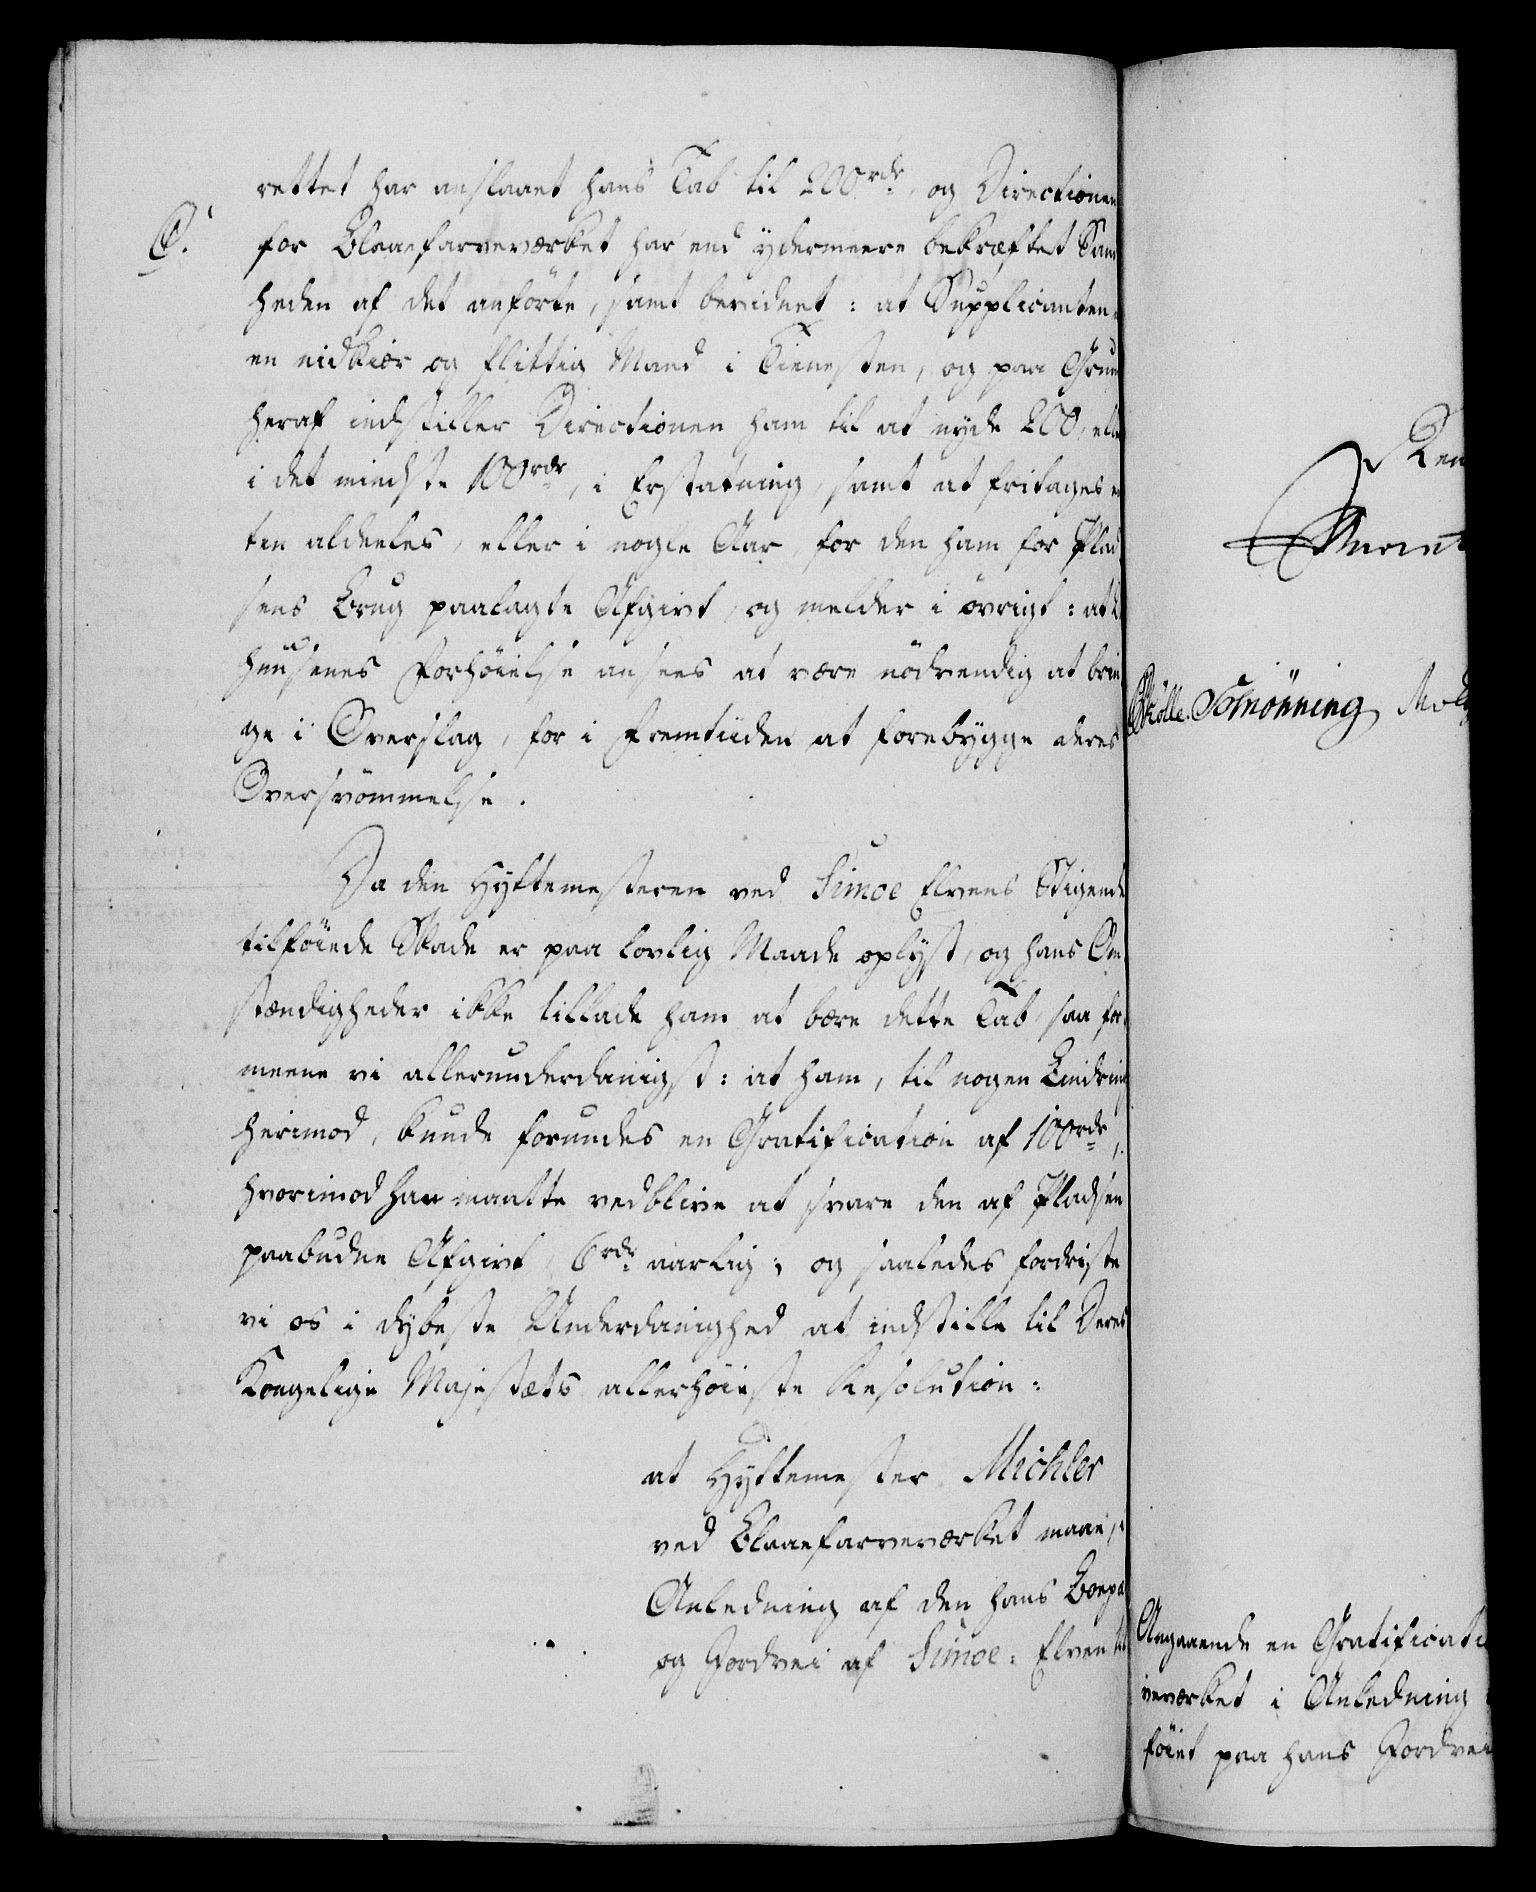 rettet har anslaaet hans Tab til 200 rdr, og Directionen
C.
for Blaaefarveværket har end ydermeere bekræftet Sand
heden af det anførte, samt bevidnet: at Supplicanten
en nidkiær og flittig Mand i Tienesten, og paa Grund
heraf indstiller Directionen ham til at nyde 200, elle
i det mindste 100 rdr, i Erstatning, samt at fritages en
ten aldeeles, eller i nogle Aar, for den ham for Plad
sens Brug paalagte Afgivt, og melder i øvrigt: at
huusenes Forhøielse ansees at være nødvendig at brin
ge i Overslag, for i Fremtiiden at forebygge deres
Oversvømmelse.
Da den Hyttemesteren ved Simoe Elvens Stigende
tilføiede Skade er paa lovlig Maade oplyst, og hans Om
stændigheder ikke tillade ham at bære dette Tab, saa for
meene vi allerunderdanigst: at ham, til nogen Lindring
herimod, kunde forundes en Gratification af 100 rdr,
hvorimod han maatte vedblive at svare den af Pladsen
paabudne Afgivt 6 rdr aarlig; og saaledes fordriste
vi os i dybeste Underdanighed at indstille til Deres
Kongelige Majestæts allerhøieste Resolution:
at Hyttemester Michler
ved Blaaefarveværket maae, i
Anledning af den hans Boepæ
og Jordvei af Simoe-Elven
Ren
Schønning
Angaaende en Gratificati
veværket i Anledning
føiet paa hans Jordvei